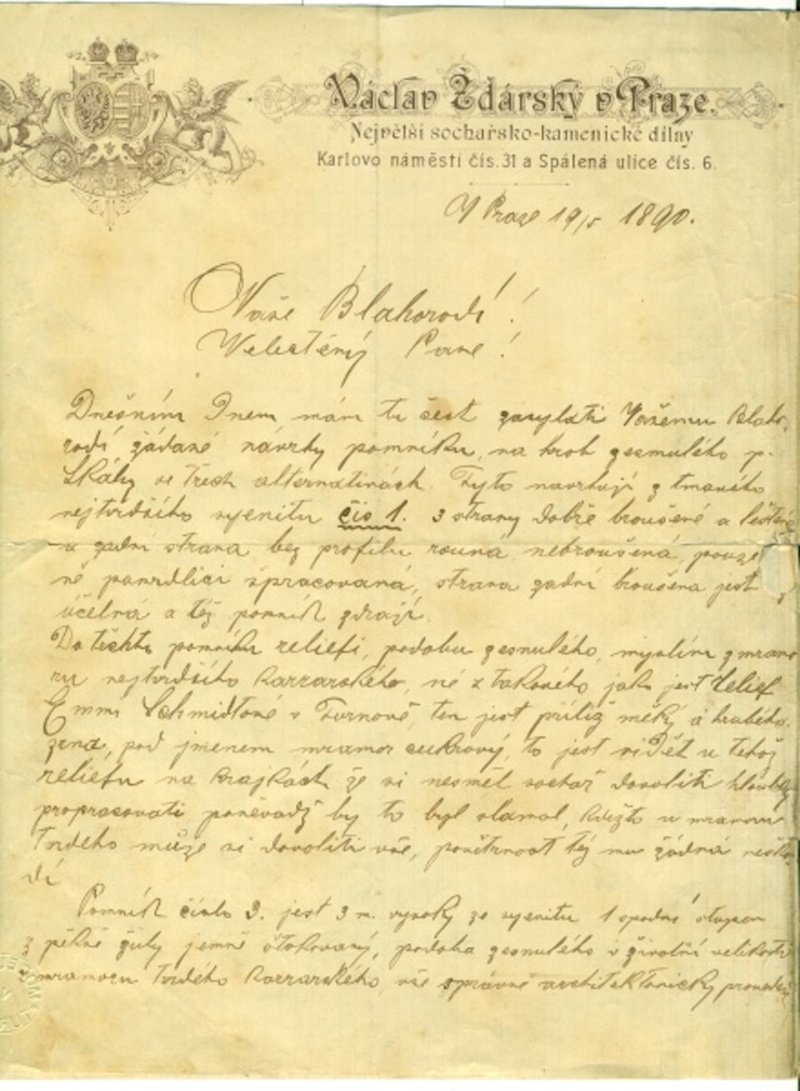 Václav Žďárský v Praze.
Největší sochařsko-kamenické dílny
Karlovo náměstí čís. 31 a Spálená ulice čís. 6.
V Praze 19/5 1890.
Vaše Blahorodí!
Velectěný Pane!
Dnešním Dnem mám tu čest zasylati Vašemu Blaho-
rodí žádané návrhy pomníku, na hrob zesnulého p.
Skály ve třech alternativách. Tyto navrhuji z tmavého
nejtvrdšího syenitu čís 1. 3 strany dobře broušené a leštěné
a zadní strana bez profilu rovná nebroušená, pouze
ně pemrdlicí spracovaná, strana zadní broušena jest
účelná a též pomník zdraží.
Do těchto pomníku reliefi, podobu zesnulého, myslím z mramo
ru nejtvrdšího karrarského, né z takového jako jest relief
Emmi Schmidtové v Turnově, ten jest příliž měký a hrubého
zrna, pod jmenem mramor cukrový, to jest viDět u tehož
reliefu na krajkách že si nesměl sochař dovolit hlouběji
propracovati poněvadž by to byl olamal, kdežto u mramoru
tvrdého může si dovoliti vše, povětrnost též mu žádná neško
dí
Pomník číslo 3. jest 3 m. vysoký ze syenitu 1 spodní stupeň
z pěkné žuly jemně štokovaný, podoba zesnulého v životní velikosti
z mramoru tvrdého karrarského, vše správně architektonicky